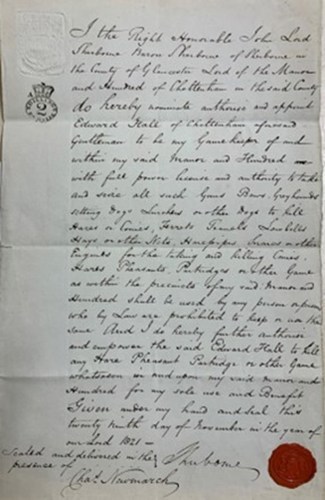 I the Right Honorable John Lord
Sherborne Baron Sherborne of Sherborne in
the County of Gloucester Lord of the Manor
and Hundred of Cheltenham in the said County
do hereby nominate authorise and appoint
Edward Hall of Cheltenham aforesaid
Gentleman to be my Gamekeeper of and
within my said Manor and Hundred
with full power license and authority to take
and seize all such Guns Bows Greyhounds
setting Dogs Lurchers or other Dogs to kill
Hares or Conies, Ferrets Tramels Lowbells
Hays or other Nets, Harepipes, Snares or other
Engines for the taking and killing Conies
Hares Pheasants, Partridges or other Game
as within the precincts of my said Manor and
Hundred shall be used by any person or persons
who by Law are prohibited to keep or use the
same And I do hereby further authorise
and empower the said Edward Hall to kill
any Hare Pheasant Partridge or other Game
whatsoever in and upon my said Manor and
Hundred for my sole use and Benefit
Given under my hand and Seal this
twenty ninth day of November in the year of
our Lord 1821 —
Sealed and delivered in the
presence of
Sherborne
Chas. Newmarch